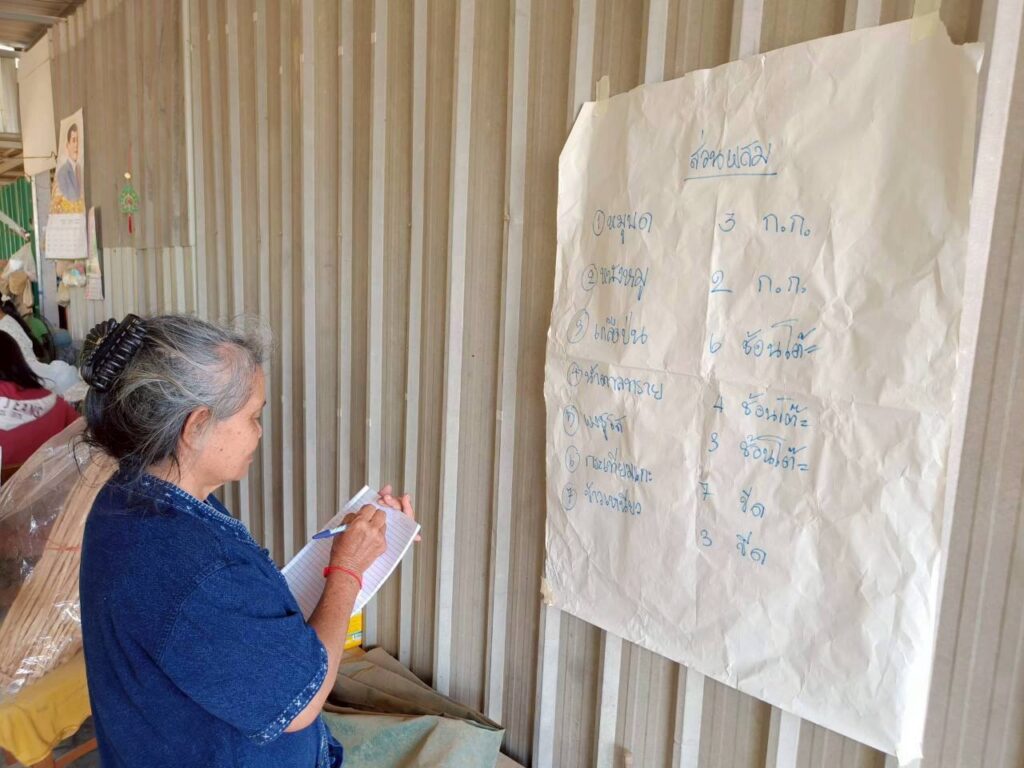 ส่วนผสม
① หมูบด 3 ก.ก.
② หนังหมู 2 ก.ก.
③ เกลือป่น 6 ช้อนโต๊ะ
④ น้ำตาลทราย 4 ช้อนโต๊ะ
⑤ ผงชูรส 3 ช้อนโต๊ะ
⑥ กระเทียมแกะ 7 ขีด
⑦ ข้าวเหนียว 3 ขีด